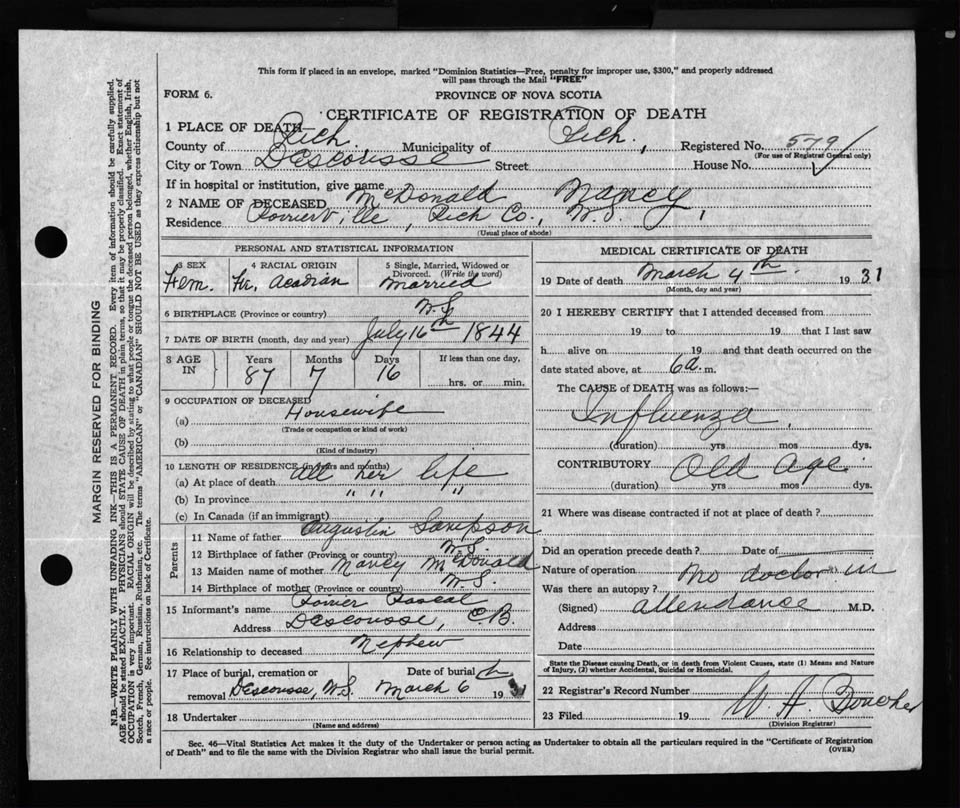 This form if placed in an envelope, marked "Dominion Statistics—Free, penalty for improper use, $300," and properly addressed
will pass through the Mail "FREE"
FORM 6.
PROVINCE OF NOVA SCOTIA
CERTIFICATE OF REGISTRATION OF DEATH
1 PLACE OF DEATH—
County of Rich. Municipality of Rich., Registered No. 579
(For use of Registrar General only)
City or Town Descousse Street House No.
If in hospital or institution, give name
2 NAME OF DECEASED McDonald Nancy
Residence Poirierville, Rich Co., N.S.,
(Usual place of abode)
PERSONAL AND STATISTICAL INFORMATION
3 SEX 4 RACIAL ORIGIN 5 Single, Married, Widowed or
Divorced. (Write the word)
Fem. Fr. Acadian Married
6 BIRTHPLACE (Province or country) N.S.
7 DATE OF BIRTH (month, day and year) July 16th 1844
8 AGE IN Years Months Days If less than one day,
87 7 16 hrs. or min.
9 OCCUPATION OF DECEASED
(a) Housewife
(Trade or occupation or kind of work)
(b)
(Kind of industry)
10 LENGTH OF RESIDENCE (in years and months)
(a) At place of death All her life
(b) In province " " "
(c) In Canada (if an immigrant)
Parents
11 Name of father Augustin Sampson
12 Birthplace of father (Province or country) N.S.
13 Maiden name of mother Nancy McDonald
14 Birthplace of mother (Province or country) N.S.
15 Informant's name Poirier Pascal
Address Descousse, C.B.
16 Relationship to deceased Nephew
17 Place of burial, cremation or Date of burial
removal Descousse, N.S. March 6th 1931
18 Undertaker
(Name and address)
MEDICAL CERTIFICATE OF DEATH
19 Date of death March 4th. 1931
(Month, day and year)
20 I HEREBY CERTIFY that I attended deceased from
19 to 19 that I last saw
h alive on 19 and that death occurred on the
date stated above, at 6 a. m.
The CAUSE of DEATH was as follows:—
Influenza
(duration) yrs mos dys.
CONTRIBUTORY Old Age
(duration) yrs mos dys.
21 Where was disease contracted if not at place of death?
Did an operation precede death? Date of
Nature of operation No doctor in
Was there an autopsy?
(Signed) attendance M.D.
Address
Date
State the Disease causing Death, or in death from Violent Causes, state (1) Means and Nature
of Injury, (2) whether Accidental, Suicidal or Homicidal.
22 Registrar's Record Number
23 Filed 19 W. A. Boucher
(Division Registrar)
Sec. 46—Vital Statistics Act makes it the duty of the Undertaker or person acting as Undertaker to obtain all the particulars required in the "Certificate of Registration
of Death" and to file the same with the Division Registrar who shall issue the burial permit.
(OVER)
MARGIN RESERVED FOR BINDING
N.B.—WRITE PLAINLY WITH UNFADING INK—THIS IS A PERMANENT RECORD. Every item of information should be carefully supplied.
AGE should be stated EXACTLY. PHYSICIANS should STATE CAUSE OF DEATH in plain terms, so that it may be properly classified. Exact statement of
OCCUPATION is very important. RACIAL ORIGIN will be described by stating to what people or tongue the deceased person belonged, whether English, Irish,
Scotch, French, German, Russian, Ruthenian, etc. The terms "AMERICAN" or "CANADIAN" SHOULD NOT BE USED as they express citizenship but not
a race or people. See instructions on back of Certificate.